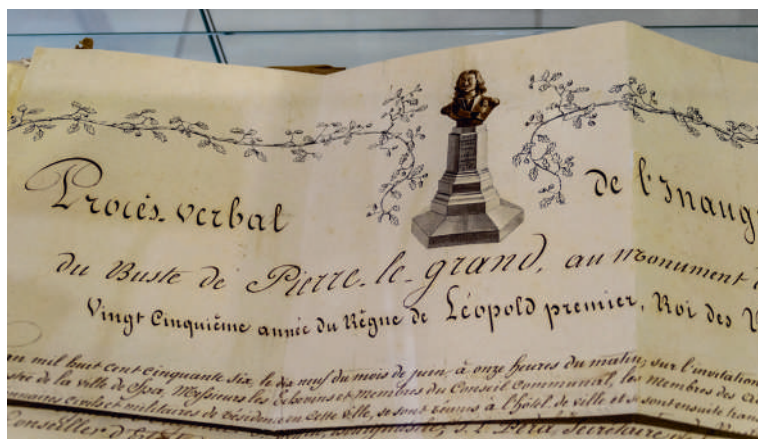 Procès-verbal de l'Inaug
du Buste de Pierre-le-grand, au Monument
Vingt Cinquième année du Règne de Léopold premier, Roi des
an mil huit cent cinquante six, le dix neuf du mois de juin, à onze heures du matin, sur l'invitation
de la ville de Spa, Messieurs les Echevins et membres du Conseil Communal, les membres des
civils et militaires de résidence en cette ville, se sont réunis à l'hôtel de ville et se sont ensuite
Conseiller d'Etat Secrétaire